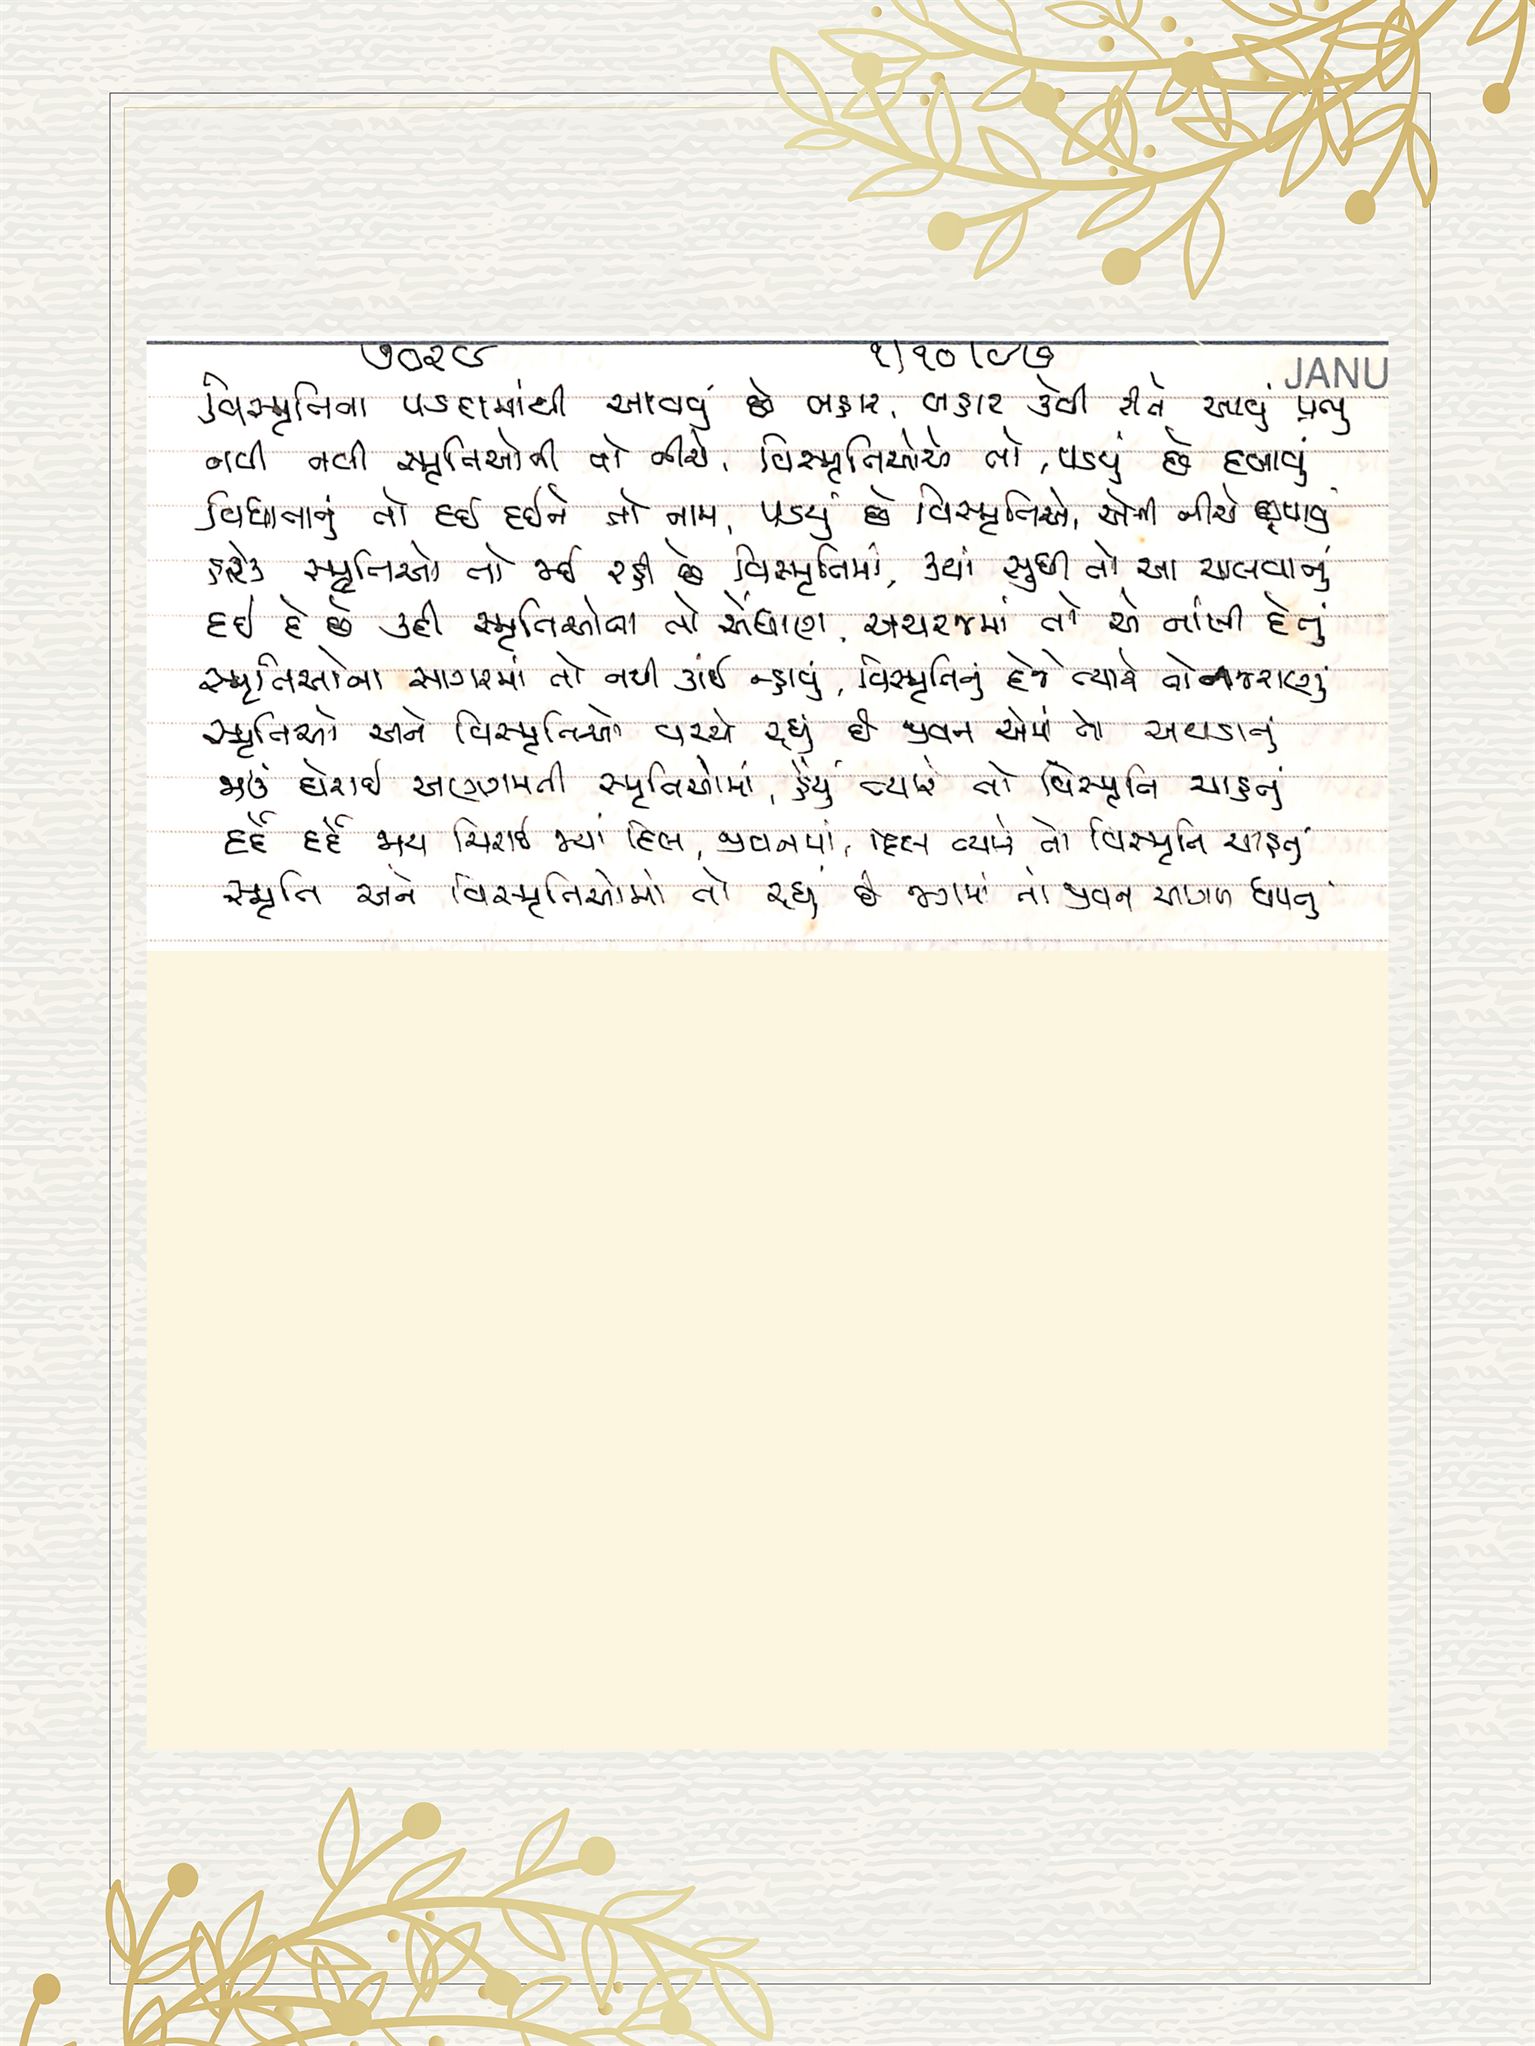 ૭૦૨૯ ૧/૧૦/૯૭
JANU
વિસ્મૃતિના પડદામાંથી આવવું છે બહાર, બહાર કેવી રીતે આવું પ્રભુ
નવી નવી સ્મૃતિઓની તો નીચે, વિસ્મૃતિઓએ તો, પડયું છે દબાવું
વિધાતાનું તો દઈ દઈને તો નામ, પડયું છે વિસ્મૃતિએ, એની નીચે છુપાવું
હરેક સ્મૃતિઓ તો જઈ રહી છે વિસ્મૃતિમાં, કયાં સુધી તો આ ચાલવાનું
દઈ દે છે કદી સ્મૃતિઓના તો એંધાણ, અચરજમાં તો એ નાંખી દેતું
સ્મૃતિઓના સાગરમાં તો નથી કાંઈ ન્હાવું, વિસ્મૃતિનું દેજે ત્યારે તો નજરાણું
સ્મૃતિઓ અને વિસ્મૃતિઓ વચ્ચે રહ્યું છે જીવન એમાં તો અથડાતું
જાઉં ઘેરાઈ અણગમતી સ્મૃતિઓમાં, હૈયું ત્યારે તો વિસ્મૃતિ ચાહતું
દર્દે દર્દે જાય ચિરાઈ જ્યાં દિલ, જીવનમાં, દિલ ત્યારે તો વિસ્મૃતિ ચાહતું
સ્મૃતિ અને વિસ્મૃતિઓમાં તો રહ્યું છે જગમાં તો જીવન આગળ ધપતું